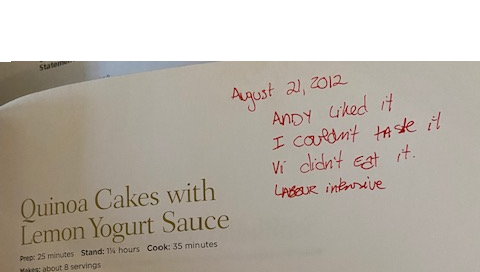 Statemen
August 21, 2012
ANDY liked it
I couldn't taste it
Vi didn't eat it.
LABOUR intensive
Quinoa Cakes with
Lemon Yogurt Sauce
Prep: 25 minutes Stand: 1¼ hours Cook: 35 minutes
Makes: about 8 servings